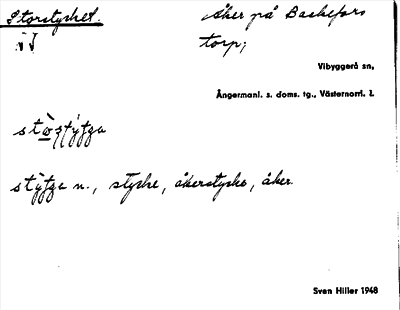 Storstycket.
åker på Backefors
torp;
Vibyggerå sn,
Ångermanl. s. doms. tg., Västernorrl. l.
n., stycke, åkerstycke, åker.
Sven Hiller 1948